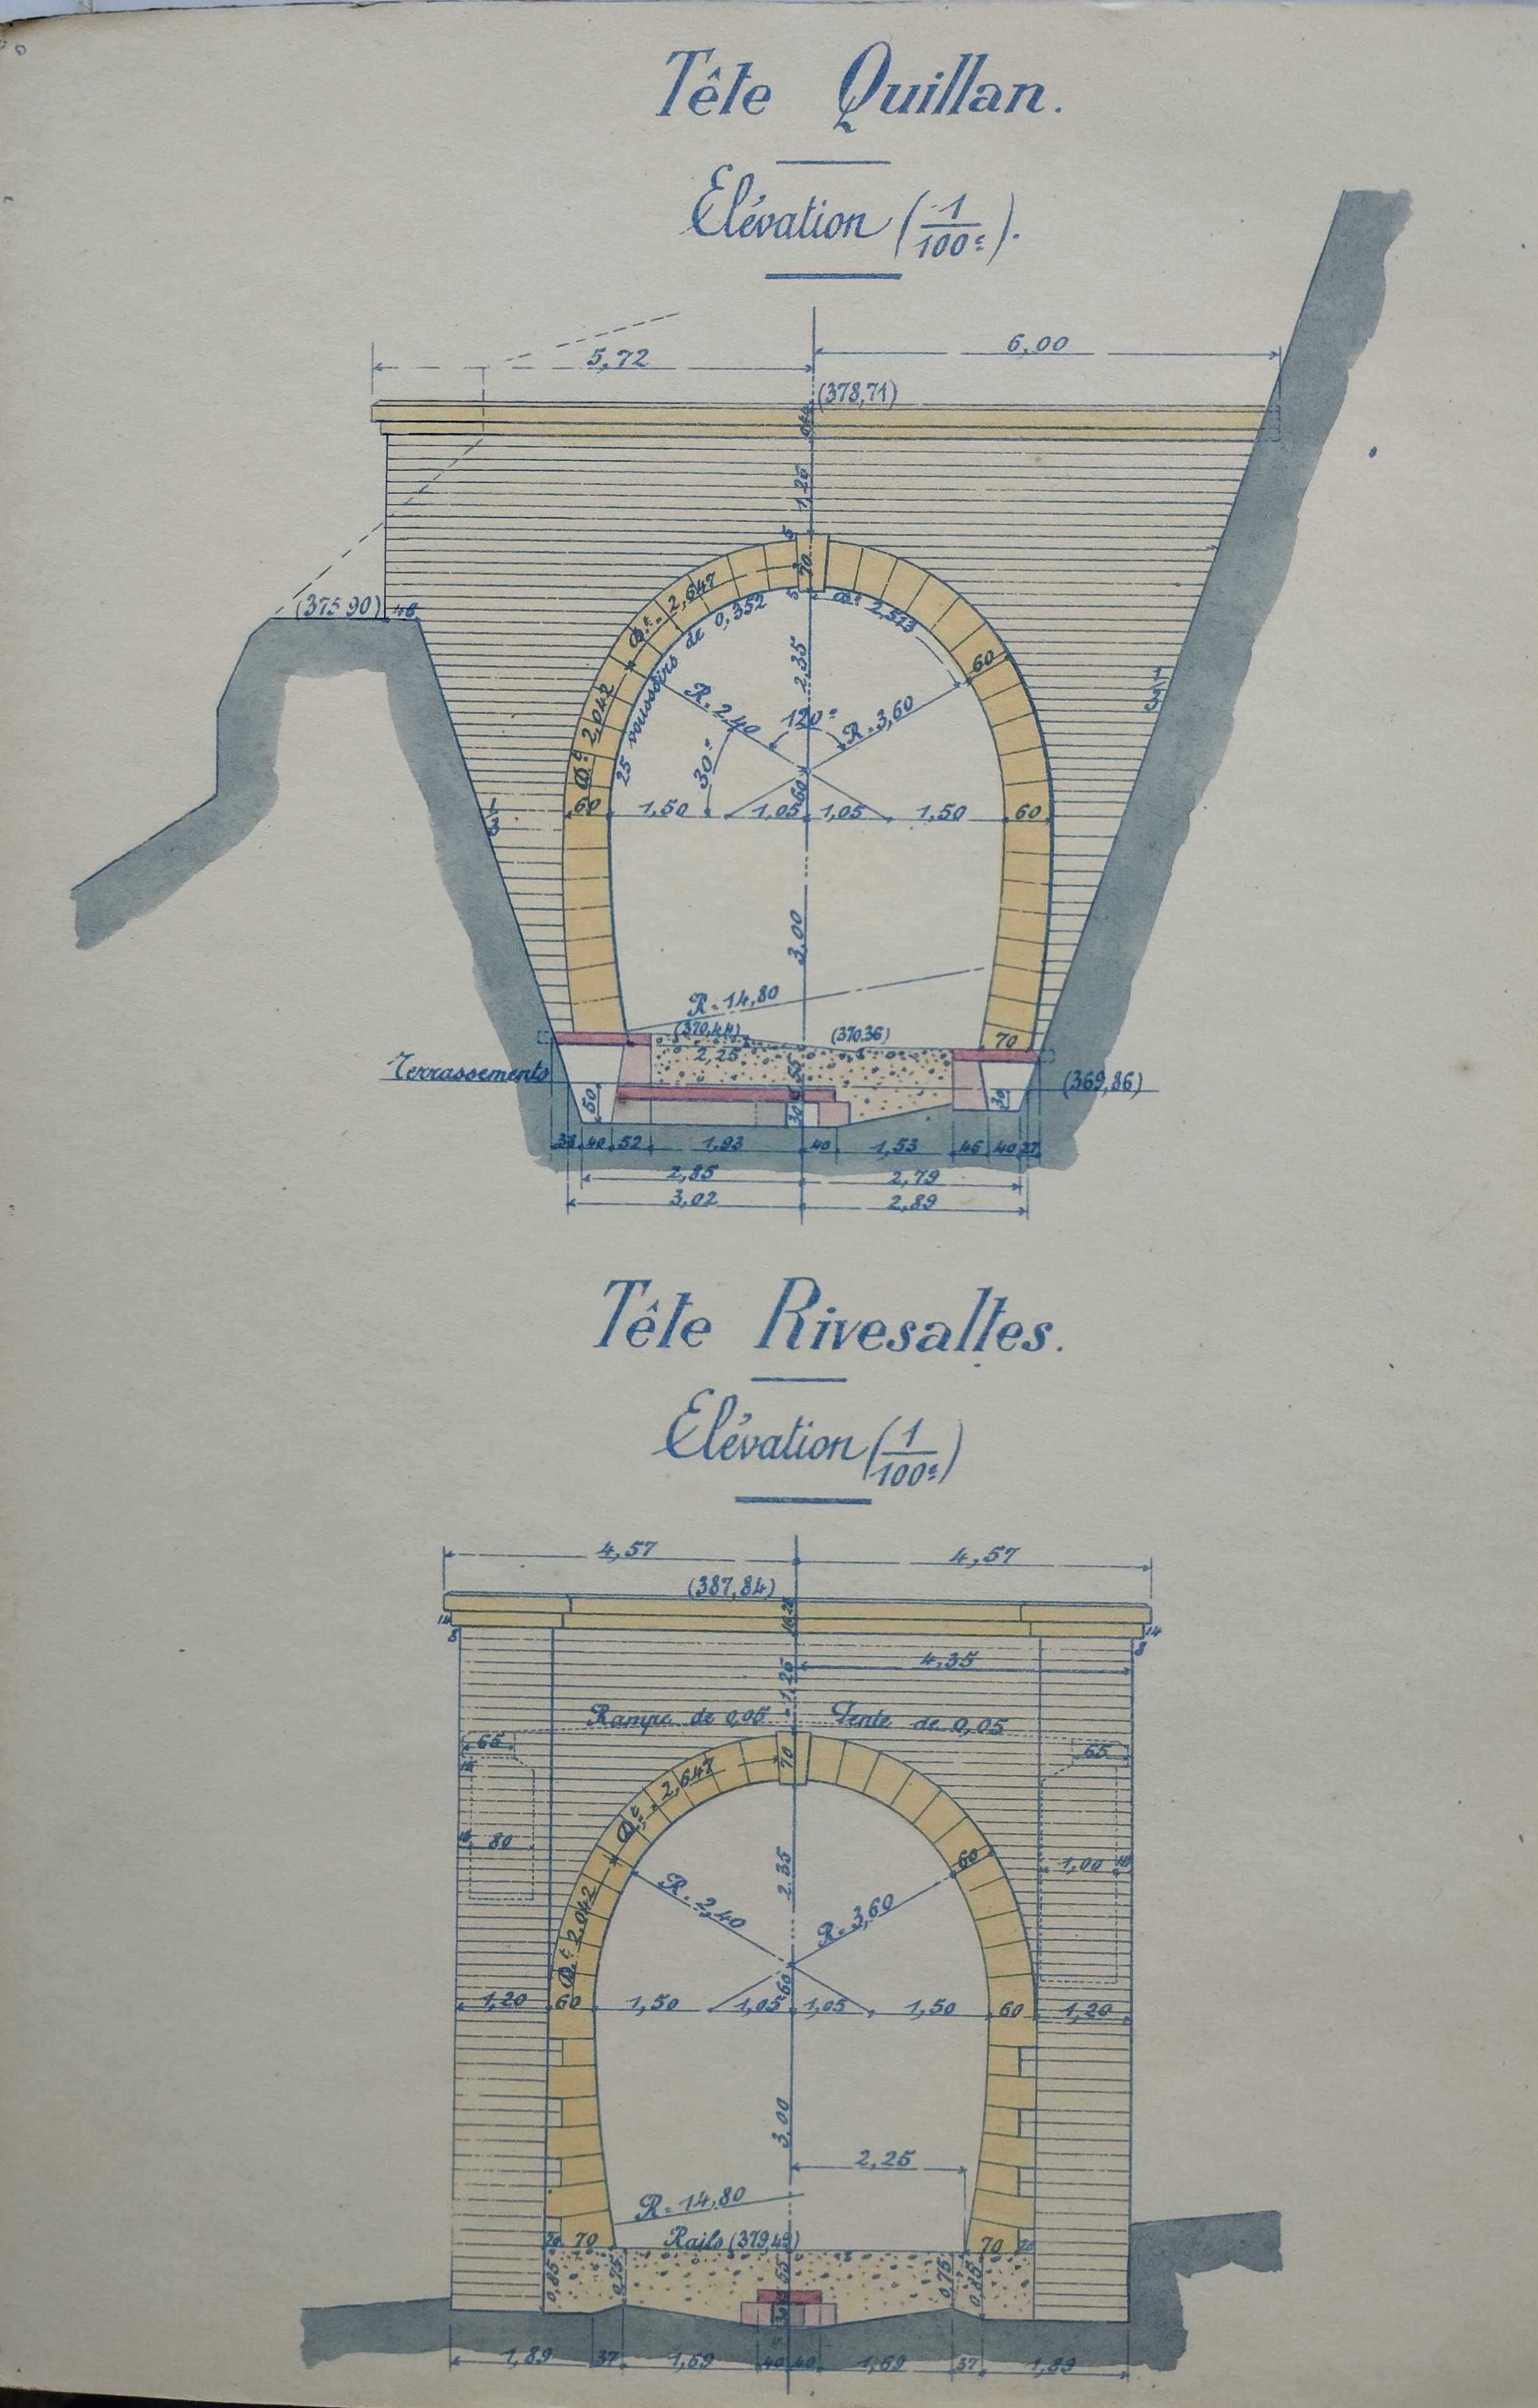 Tête Quillan.
Elévation (1/100e).
5,72
6,00
(378,71)
1,25
5
70
(375,90)
48
Dt. 2,647
25 voussoirs de 0,352
5
Dt. 2,513
60
Dt. 2,042
2,35
R. 2,40
120°
R. 3,60
30°
1/3
1/3
60
1,50
1,05
60
1,05
1,50
60
3,00
R. 14,80
(370,44)
(370,36)
70
2,25
55
Terrassements
(369,86)
50
30
30
33
40
52
1,93
40
1,53
46
40
2,85
2,79
3,02
2,89
Tête Rivesaltes.
Elévation (1/100e)
4,57
4,57
(387,84)
14
14
8
8
4,35
1,25
Rampe de 0,05
Pente de 0,05
65
65
70
Dt. 2,647
80
60
1,00
2,35
R. 2,40
R. 3,60
Dt. 2,042
1,20
60
1,50
1,05
60
1,05
1,50
60
1,20
3,00
2,25
R. 14,80
20
70
Rails (379,49)
70
20
0,85
0,75
55
0,75
0,85
30
1,89
37
1,69
40
40
1,69
37
1,89